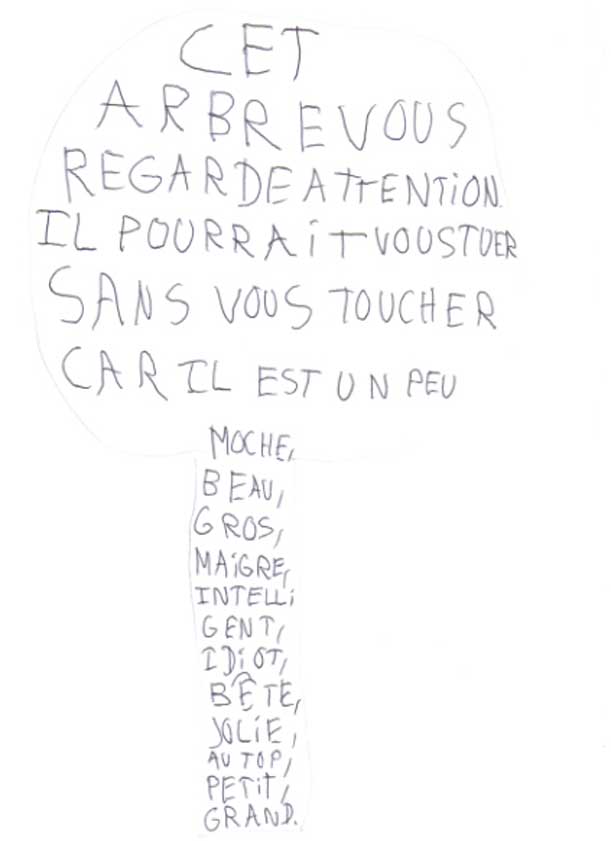 CET
ARBRE VOUS
REGARDE ATTENTION
IL POURRAiT VOUS TUER
SANS VOUS TOUCHER
CAR IL EST UN PEU
MOCHE,
BEAU,
GROS,
MAiGRE,
INTELLi
GENT,
IDiOT,
BÊTE,
JOLiE,
AU TOP,
PETiT,
GRAND.